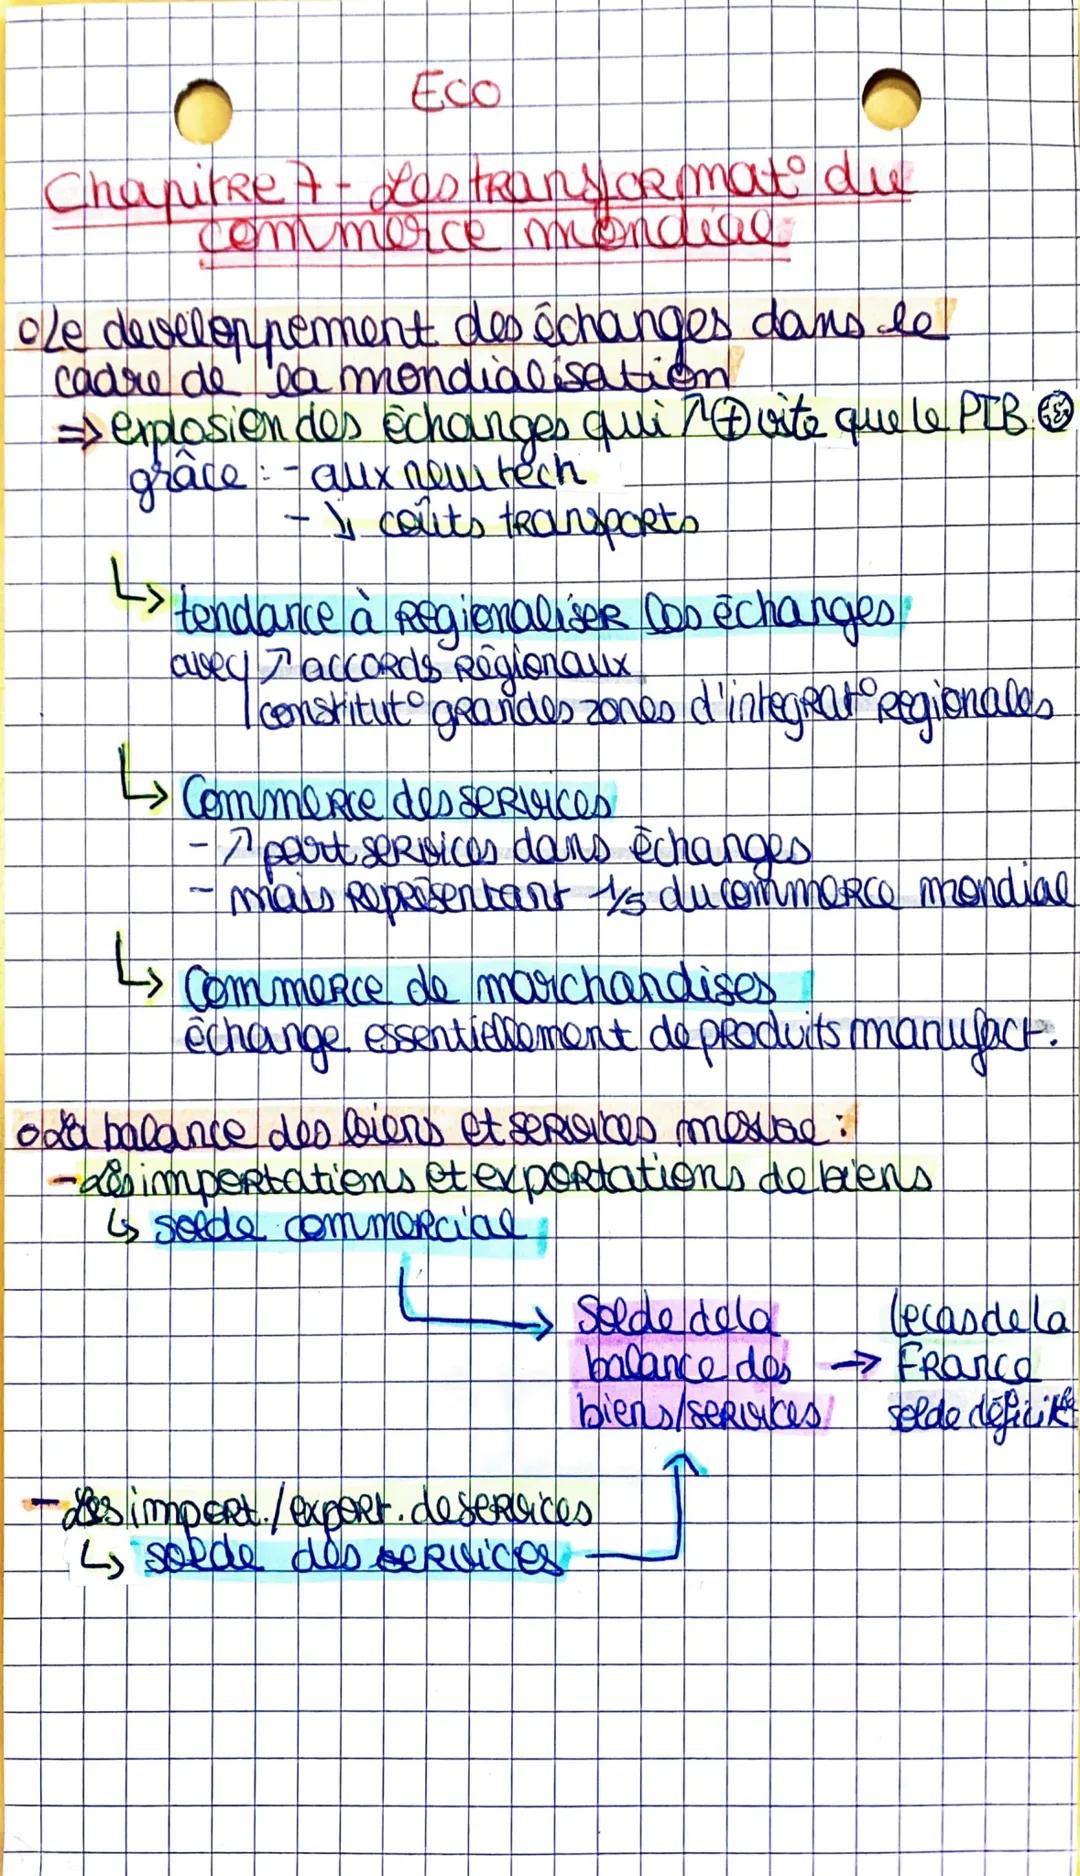 Eco
Chapitre 7 - Les transformat° du
commerce mondial
o Le developpement des échanges dans le
cadre de la mondialisation
⇒ explosion des échanges qui ↗ ⊕ vite que le PIB
grâce : - aux new tech
- ↘ coûts transports
↳ tendance à régionaliser les échanges
avec ↗ accords régionaux
constitut° grandes zones d'intégrat° régionales
↳ Commerce des services
- ↗ part services dans échanges
- mais représentant 1/5 du commerce mondial
↳ Commerce de marchandises
échange essentiellement de produits manufact.
o La balance des biens et services mesure :
- les importations et exportations de biens
↳ solde commercial
→ Solde de la
balance des
biens/services
→ le cas de la
France
solde déficit
- les import./export. de services
↳ solde des services